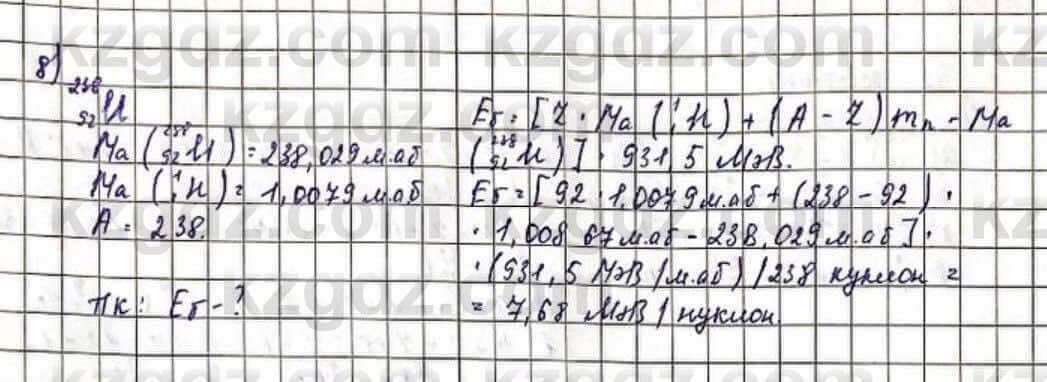 8)
²³⁸₉₂U
Ma (²³⁸₉₂U) = 238,029 м.аб
Ma (¹₁H) = 1,0079 м.аб
A = 238.
ТК: Eб - ?
Eб = [Z · Ma (¹₁H) + (A - Z) mn - Ma
(²³⁸₉₂U)] · 931,5 МэВ.
Eб = [92 · 1,0079 м.аб + (238 - 92) ·
· 1,00867 м.аб - 238,029 м.аб] ·
· (931,5 МэВ/м.аб) / 238 нуклон =
= 7,68 МэВ / нуклон.
kzgdz.com